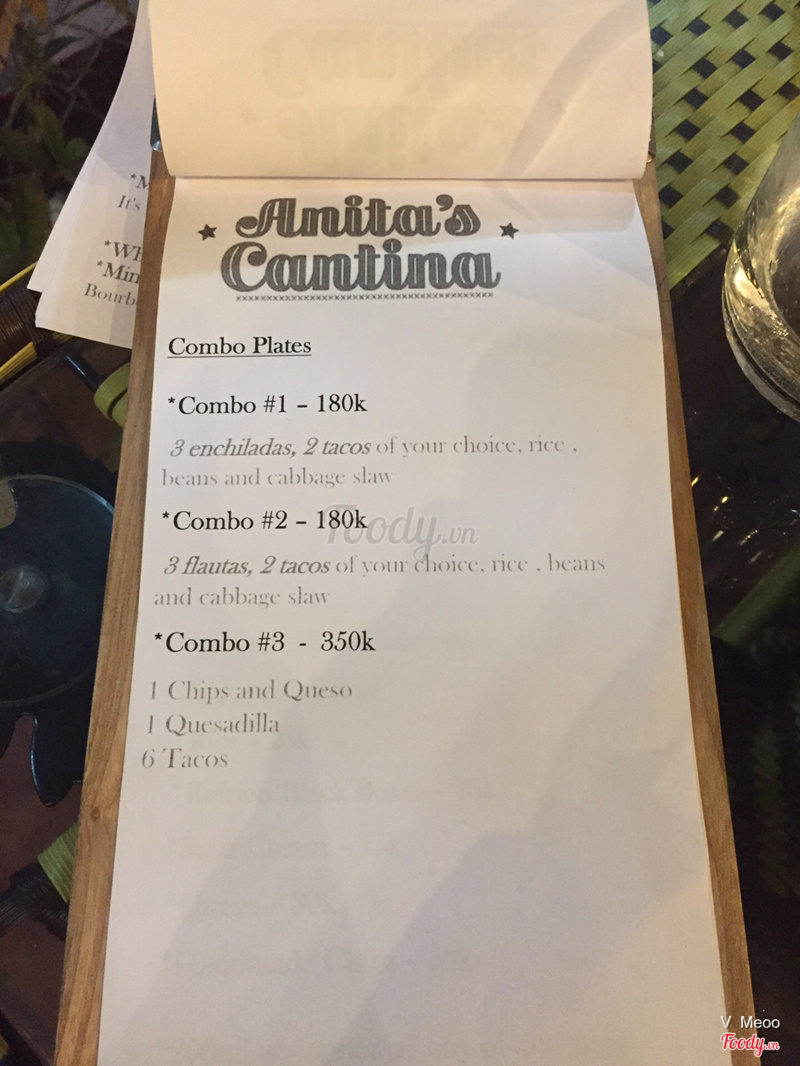 *M
It's
*Wh
*Min
Bourb
Anita's
Cantina
Combo Plates
*Combo #1 – 180k
3 enchiladas, 2 tacos of your choice, rice ,
beans and cabbage slaw
*Combo #2 – 180k
Foody.vn
3 flautas, 2 tacos of your choice, rice , beans
and cabbage slaw
*Combo #3 - 350k
1 Chips and Queso
1 Quesadilla
6 Tacos
Refried Black Beans
*Sour Cream
V Meoo
Foody.vn